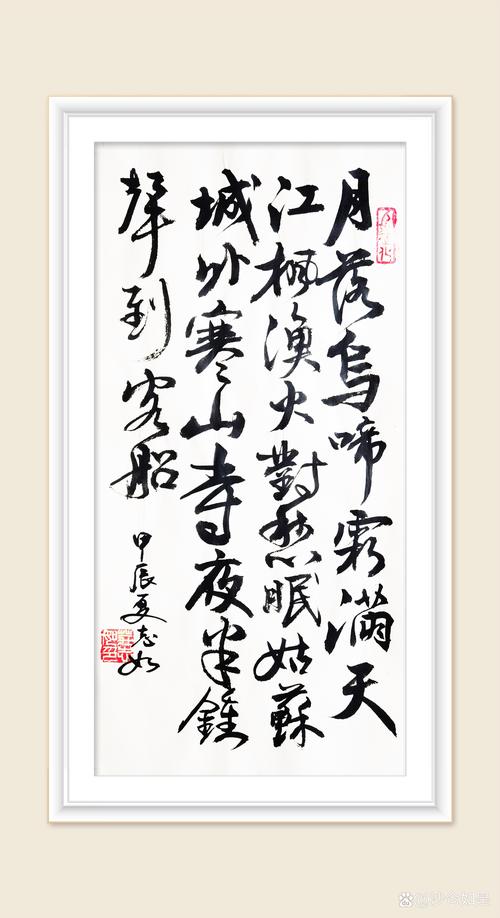 月落烏啼霜滿天
江楓漁火對愁眠姑蘇
城外寒山寺夜半鍾
聲到客船
甲辰夏志如